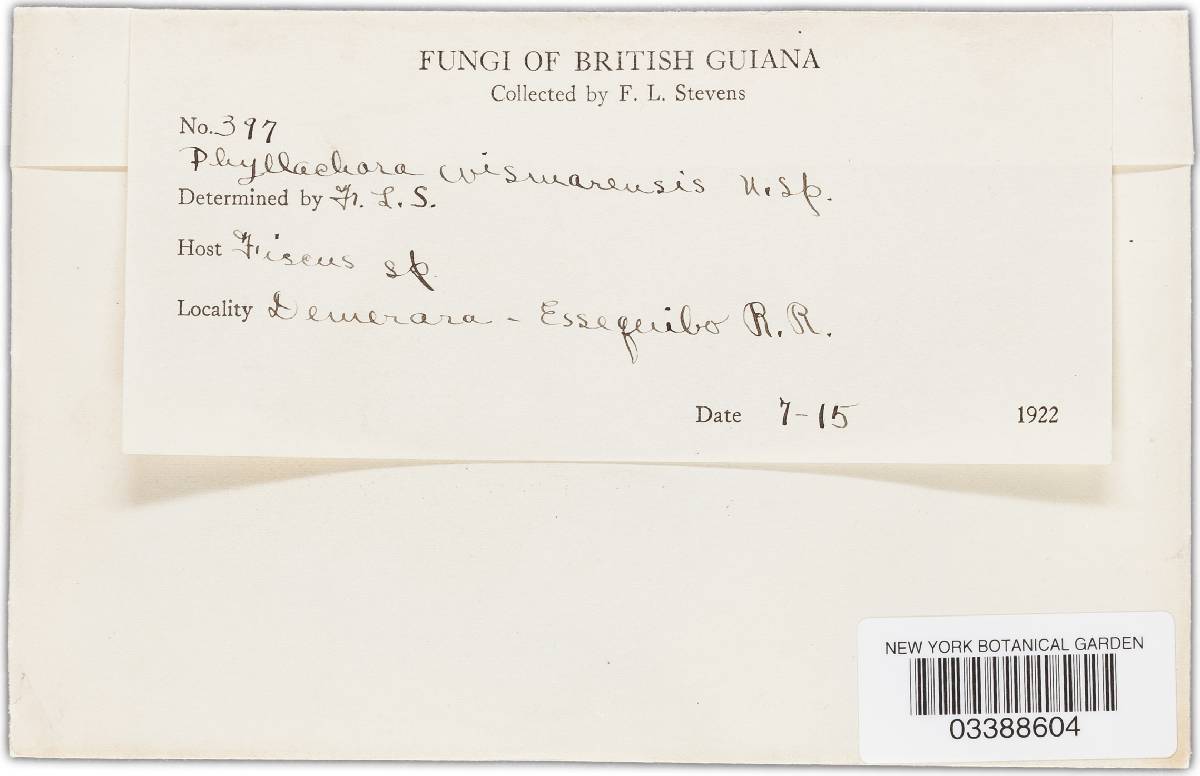 FUNGI OF BRITISH GUIANA
Collected by F. L. Stevens
No. 397
Phyllachora wismarensis n. sp.
Determined by F. L. S.
Host Fiscus sp.
Locality Demerara - Essequibo R. R.
Date 7-15 1922
NEW YORK BOTANICAL GARDEN
03388604